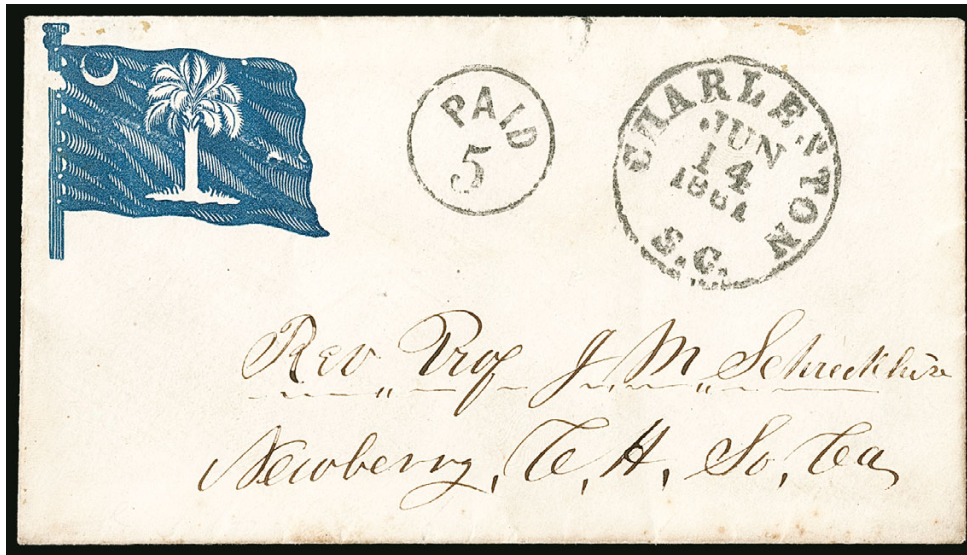 PAID
5
CHARLESTON
JUN
14
1861
S.C.
Rev Prof J M Schreckhise
Newberry, C, H, So, Ca,